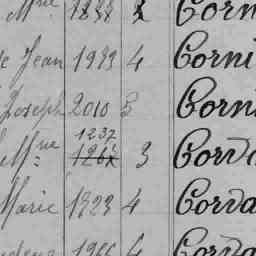 Mme 1838 2 Corn
e Jean 1933 4 Corni
Joseph 2010 3 Corni
Mme 1237 3 Corda
Marie 1323 4 Corda
1966 4 Corda